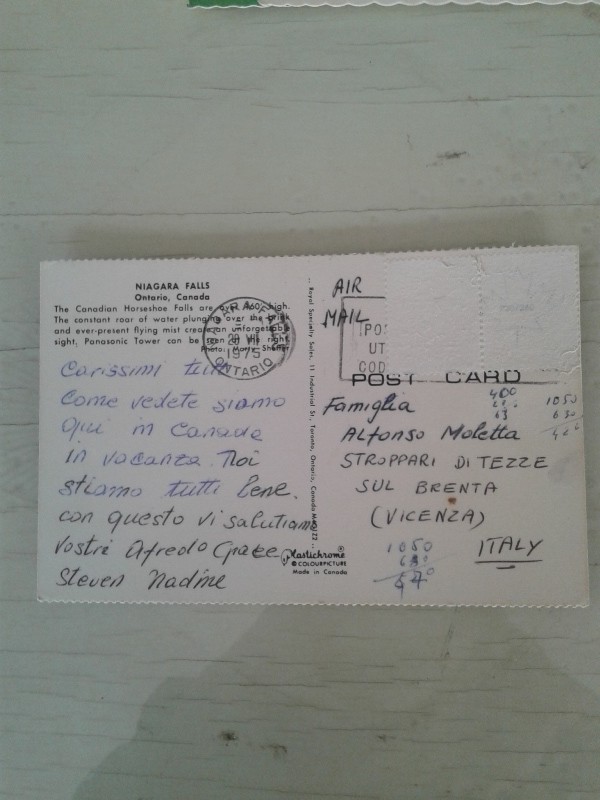 NIAGARA FALLS
Ontario, Canada
The Canadian Horseshoe Falls are over 160' high.
The constant roar of water plunging over the brink
and ever-present flying mist create an unforgettable
sight, Panasonic Tower can be seen at right.
Photo: Morty Shaffer
NIAGARA FALLS
VII
1975
ONTARIO
Carissimi tutti
Come vedete siamo
qui in Canada
in vacanza. Noi
stiamo tutti bene.
con questo vi salutiamo
vostri Alfredo Grace
Steven Nadine
Royal Specialty Sales, 11 Industrial St., Toronto, Ontario, Canada
Plastichrome®
© COLOURPICTURE
Made in Canada
AIR
MAIL
POS
UT
COD
POST CARD
Famiglia
Alfonso Moletta
STROPPARI DI TEZZE
SUL BRENTA
(VICENZA)
ITALY
400
63
1050
630
1050